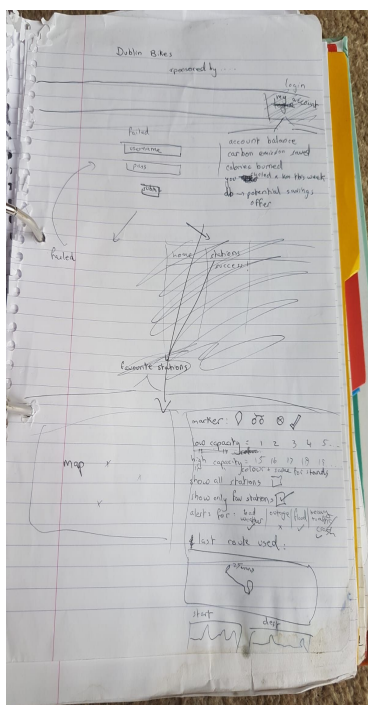 Dublin Bikes
sponsored by ...
login
my account
failed
username
pass
submit
account balance
carbon emission saved
calories burned
you cycled x km this week
potential savings
offer
failed
home stations
success
favourite stations
marker:
low capacity = 1 2 3 4 5 ..
high capacity = 15 16 17 18
colour + same for stands
map
show all stations
show only fav stations
alerts for: bad weather outage
last route used:
start dest